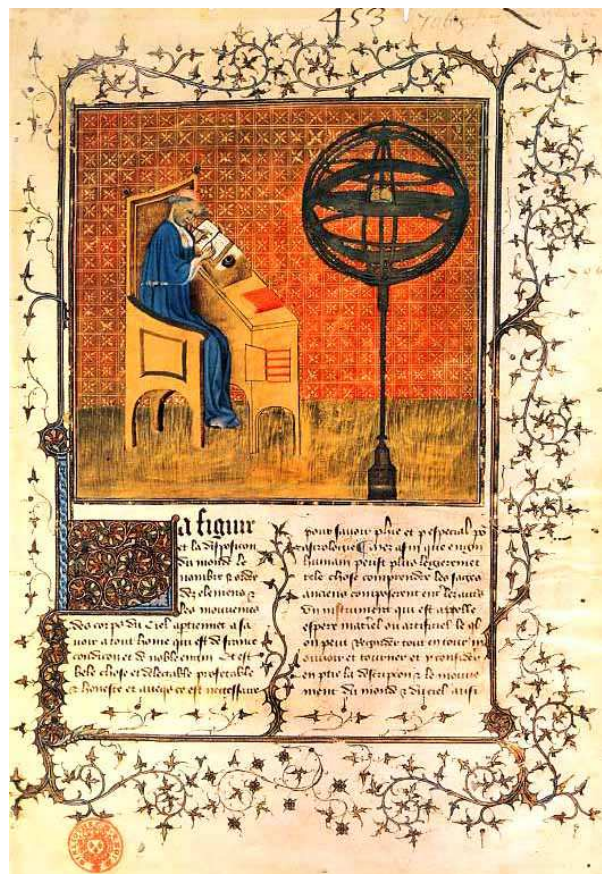 453
7065
La figure
et la disposicion
du monde le
nombre & ordre
des elemens &
les mouvemens
des corps du ciel aptiennent a sa
voir a tout home qui est de france
condicion et de noble engin Et est
bele chose et delectable profetable
& honeste et avecqs ce est necessaire
pour savoir phie et p especial po
astrologie Mes afin que engin
humain peust plus legierement
tele chose comprendre les sages
anciens composerent
un instrument qui est appelle
espere materiel ou artificiel le ql
on peut regarder tout entour
mouvoir et tourner et y considerer
en ptie la discripcion & le mouve
ment du monde & du ciel aussi